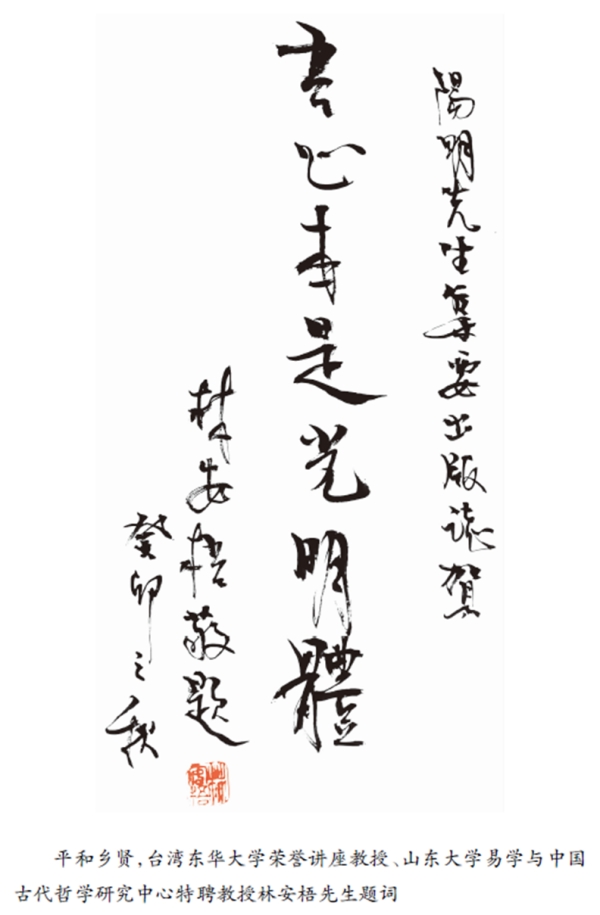 陽明先生集要出版誌賀
吾心本是光明體
林安梧敬題
癸卯之秋
平和乡贤，台湾东华大学荣誉讲座教授、山东大学易学与中国
古代哲学研究中心特聘教授林安梧先生题词